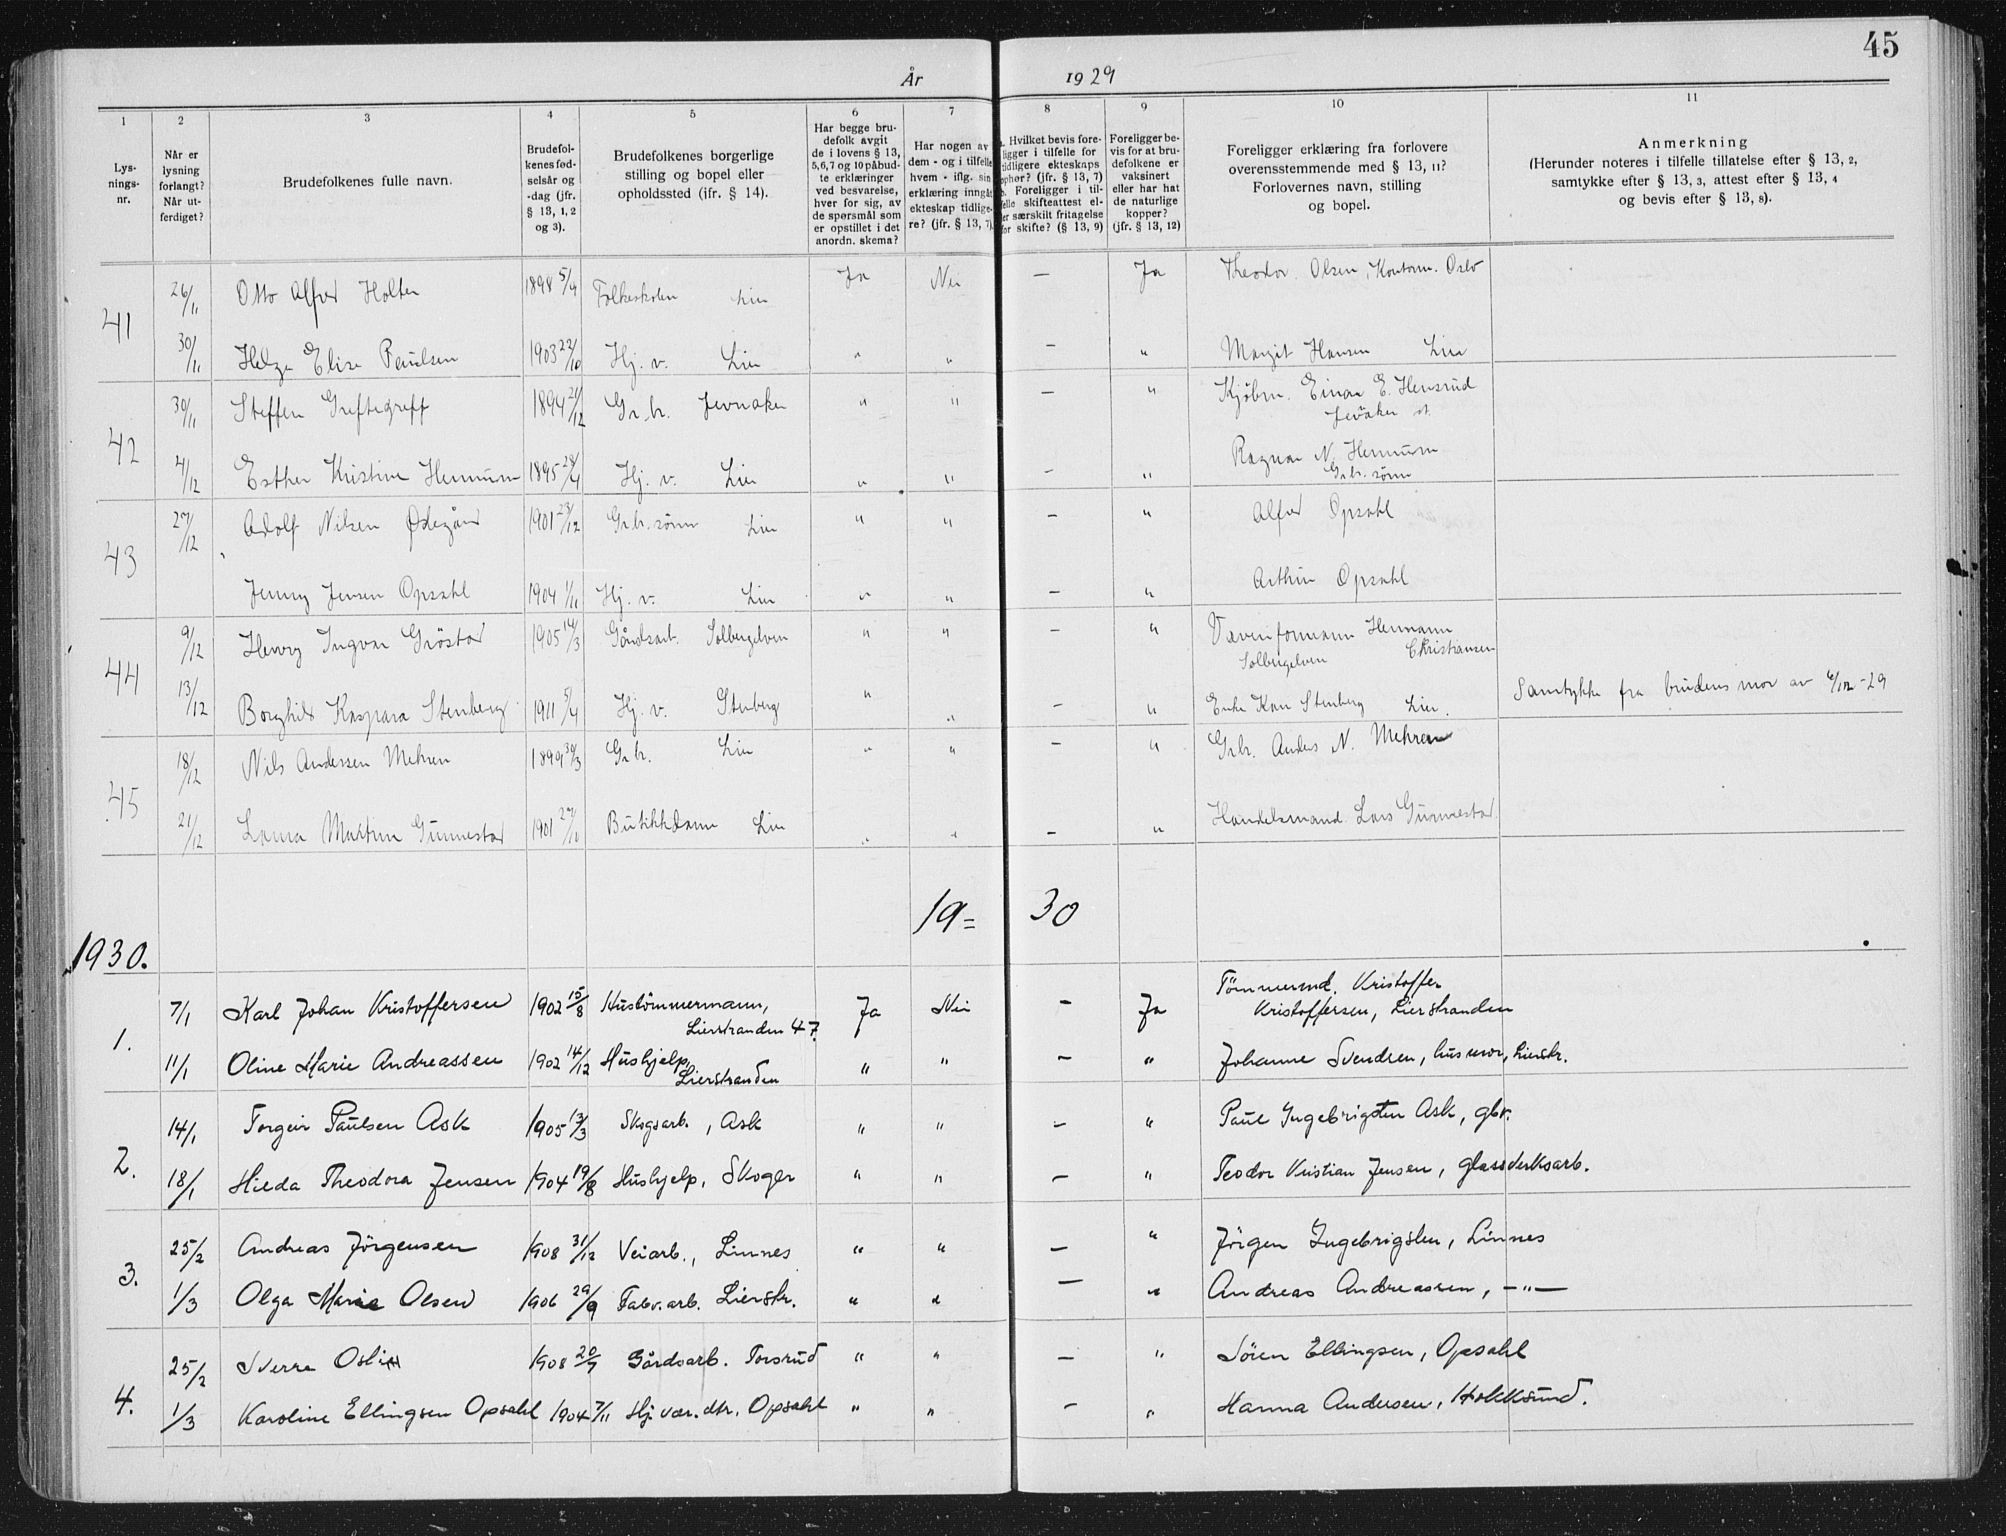 45
År 1929
1 2 3 4 5 6 7 8 9 10 11
Lys-
nings-
nr.
Når er
lysning
forlangt?
Når ut-
ferdiget?
Brudefolkenes fulle navn.
Brudefol-
kenes fød-
selsår og
-dag (jfr.
§ 13, 1, 2
og 3).
Brudefolkenes borgerlige
stilling og bopel eller
opholdssted (jfr. § 14).
Har begge bru-
defolk avgit
de i lovens § 13,
5,6,7 og 10 påbud-
te erklæringer
ved besvarelse,
hver for sig, av
de spørsmål som
er opstillet i det
anordn. skema?
Har nogen av
dem - og i tilfelle
hvem - iflg. sin
erklæring inngåt
ekteskap tidlige-
re? (jfr. § 13, 7)
Hvilket bevis fore-
ligger i tilfelle for
tidligere ekteskaps
ophør? (jfr. § 13, 7)
Foreligger i til-
felle skifteattest el-
er særskilt fritagelse
for skifte? (§ 13, 9)
Foreligger be-
vis for at bru-
defolkene er
vaksinert
eller har hat
de naturlige
kopper?
(jfr. § 13, 12)
Foreligger erklæring fra forlovere
overensstemmende med § 13, 11?
Forlovernes navn, stilling
og bopel.
Anmerkning
(Herunder noteres i tilfelle tillatelse efter § 13, 2,
samtykke efter § 13, 3, attest efter § 13, 4
og bevis efter § 13, 8).
41 26/11 Otto Alfred Holter 1898 5/9 Folkeskolen Lier Ja Nei — Ja Theodor Olsen, Kontorm. Oslo
30/11 Helga Elise Paulsen 1903 22/10 Hj. v. Lier " " — " Margit Hansen Lier
42 30/11 Steffen Greftegreff 1894 21/12 Gr.br. Jevnaker " " — " Kjøbm. Einar E. Hensrud
Jevnaker st.
4/12 Esther Kristine Hennum 1895 28/4 Hj. v. Lier " " — " Ragnar N. Hennum
Grbr. sønn
43 27/12 Adolf Nilsen Ødegård 1901 23/12 Grbr. sønn Lier " " — " Alfred Opsahl
Jenny Jensen Opsahl 1904 1/11 Hj. v. Lier " " — " Arthur Opsahl
44 9/12 Henry Ingvar Grøstad 1905 14/3 Gårdsarb. Solbergelven " " — " Væverformann Hermann
Solbergelven Christiansen
13/12 Borghild Kaspara Stenberg 1911 5/4 Hj. v. Stenberg " " — " Enke Kari Stenberg Lier. Samtykke fra brudens mor av 6/12-29
45 18/12 Nils Andersen Mehren 1899 30/3 Gr.br. Lier " " — " Grbr. Anders N. Mehren
21/12 Laura Martine Gunnestad 1901 27/10 Butikkdame Lier " " — " Handelsmand Lars Gunnestad
19= 30
1930.
1. 7/1 Karl Johan Kristoffersen 1902 15/8 Hustømmermann,
Lierstranden 47. Ja Nei — Ja Tømmermd. Kristoffer
Kristoffersen, Lierstranden
11/1 Oline Marie Andreassen 1902 14/12 Hushjelp,
Lierstranden " " — " Johanne Svendsen, husmor, Lierstr.
2. 14/1 Torgeir Paulsen Ask 1905 13/3 Skogsarb., Ask " " — " Paul Ingebrigsten Ask, gbr.
18/1 Hilda Theodora Jensen 1904 19/8 Hushjelp, Skoger " " — " Teodor Kristian Jensen, glassverksarb.
3. 25/2 Andreas Jørgensen 1908 31/12 Veiarb., Linnes " " — " Jørgen Ingebrigsten, Linnes
1/3 Olga Marie Olsen 1906 29/9 Fabr.arb. Lierstr. " " — " Andreas Andreassen, —"—
4. 25/2 Sverre Osli 1908 20/7 Gårdsarb. Torsrud " " — " Søren Ellingsen, Opsahl
1/3 Karoline Ellingsen Opsahl 1904 7/11 Hj. vær. dtr. Opsahl " " — " Hanna Andersen, Hokksund.